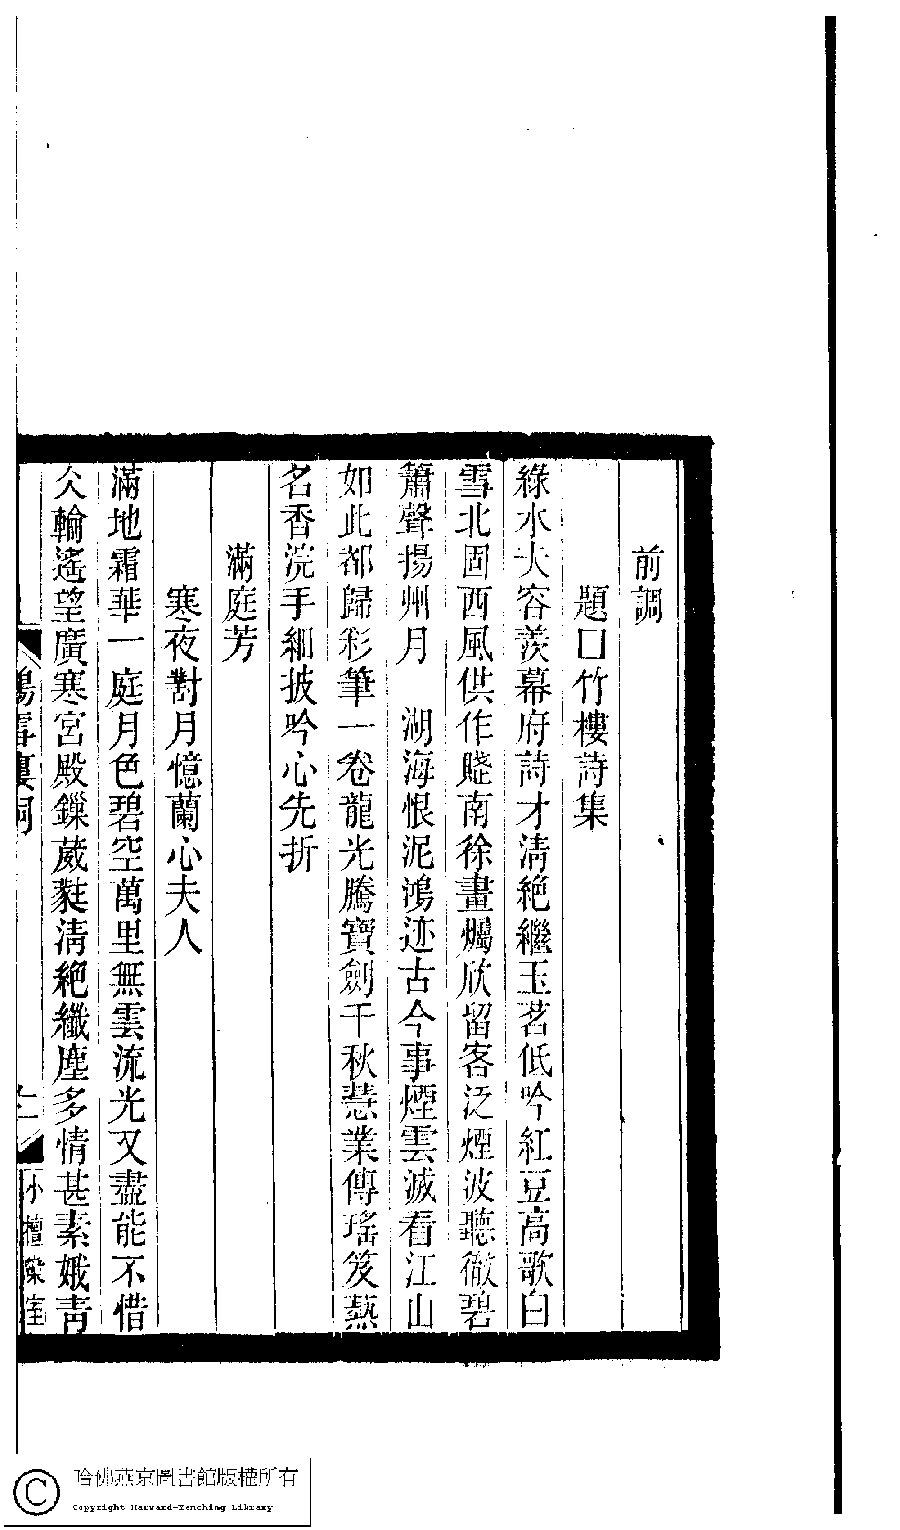 前調
題口竹樓詩集
綠水大容羨幕府詩才淸絶繼玉茗低吟紅豆高歌白
雪北固西風供作賤南徐畫燭欣留客泛煙波聽徹碧
簫聲揚州月　湖海恨泥鴻迹古今事煙雲滅看江山
如此都歸彩筆一卷龍光騰寶劍千秋慧業傳瑤笈爇
名香浣手細披吟心先折
滿庭芳
寒夜對月憶蘭心夫人
滿地霜華一庭月色碧空萬里無雲流光又盡能不惜
久輪遙望廣寒宮殿鏁葳蕤淸絶纖塵多情甚素娥靑
小檀欒室
哈佛燕京圖書館版權所有
Copyright Harvard-Yenching Library